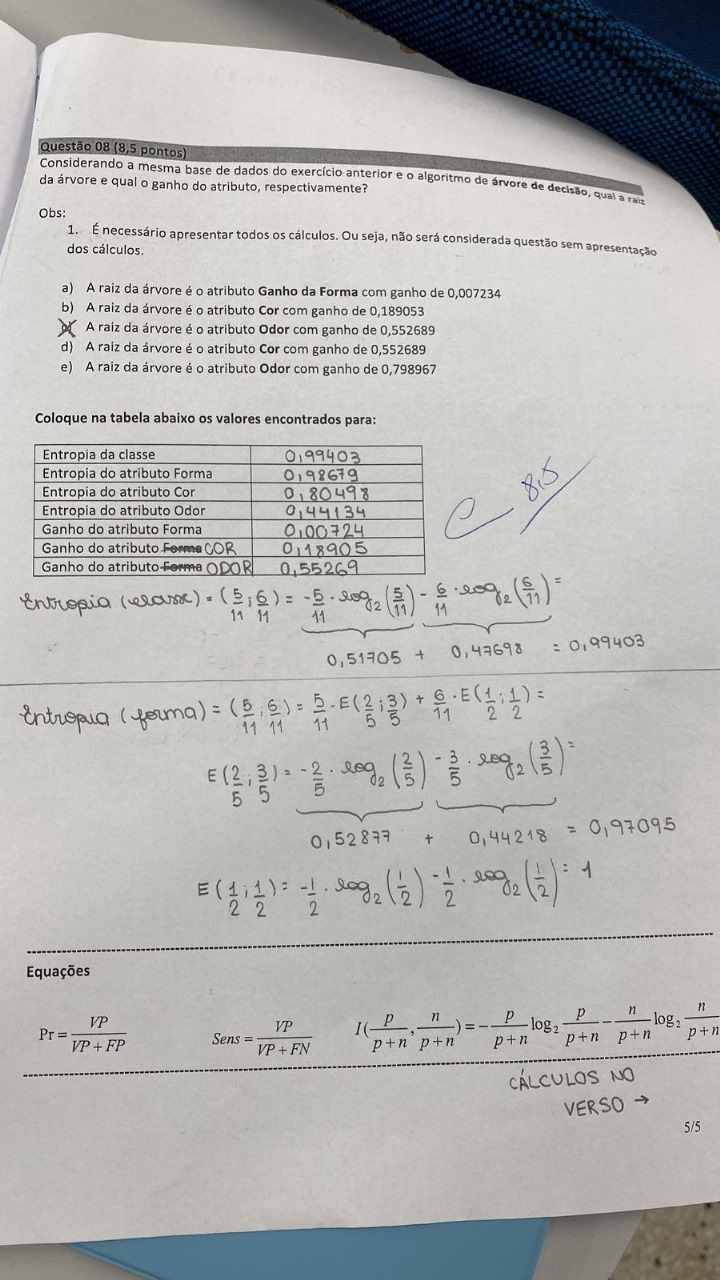 Questão 08 (8,5 pontos)
Considerando a mesma base de dados do exercício anterior e o algoritmo de árvore de decisão, qual a raiz
da árvore e qual o ganho do atributo, respectivamente?
Obs:
1. É necessário apresentar todos os cálculos. Ou seja, não será considerada questão sem apresentação
dos cálculos.
a) A raiz da árvore é o atributo Ganho da Forma com ganho de 0,007234
b) A raiz da árvore é o atributo Cor com ganho de 0,189053
c) A raiz da árvore é o atributo Odor com ganho de 0,552689
d) A raiz da árvore é o atributo Cor com ganho de 0,552689
e) A raiz da árvore é o atributo Odor com ganho de 0,798967
Coloque na tabela abaixo os valores encontrados para:
Entropia da classe 0,99403
Entropia do atributo Forma 0,98679
Entropia do atributo Cor 0,80498
Entropia do atributo Odor 0,44134
Ganho do atributo Forma 0,00724
Ganho do atributo Forma COR 0,18905
Ganho do atributo Forma ODOR 0,55269
C 8,5
Entropia (classe) = (5/11 ; 6/11) = -5/11 · log₂(5/11) - 6/11 · log₂(6/11) =
0,51705 + 0,47698 = 0,99403
Entropia (forma) = (5/11 ; 6/11) = 5/11 · E(2/5 ; 3/5) + 6/11 · E(1/2 ; 1/2) =
E(2/5 ; 3/5) = -2/5 · log₂(2/5) - 3/5 · log₂(3/5) =
0,52877 + 0,44218 = 0,97095
E(1/2 ; 1/2) = -1/2 · log₂(1/2) - 1/2 · log₂(1/2) = 1
Equações
Pr = VP/(VP + FP) Sens = VP/(VP + FN) I(p/(p+n), n/(p+n)) = - p/(p+n) log₂ p/(p+n) - n/(p+n) log₂ n/(p+n
CÁLCULOS NO
VERSO →
5/5